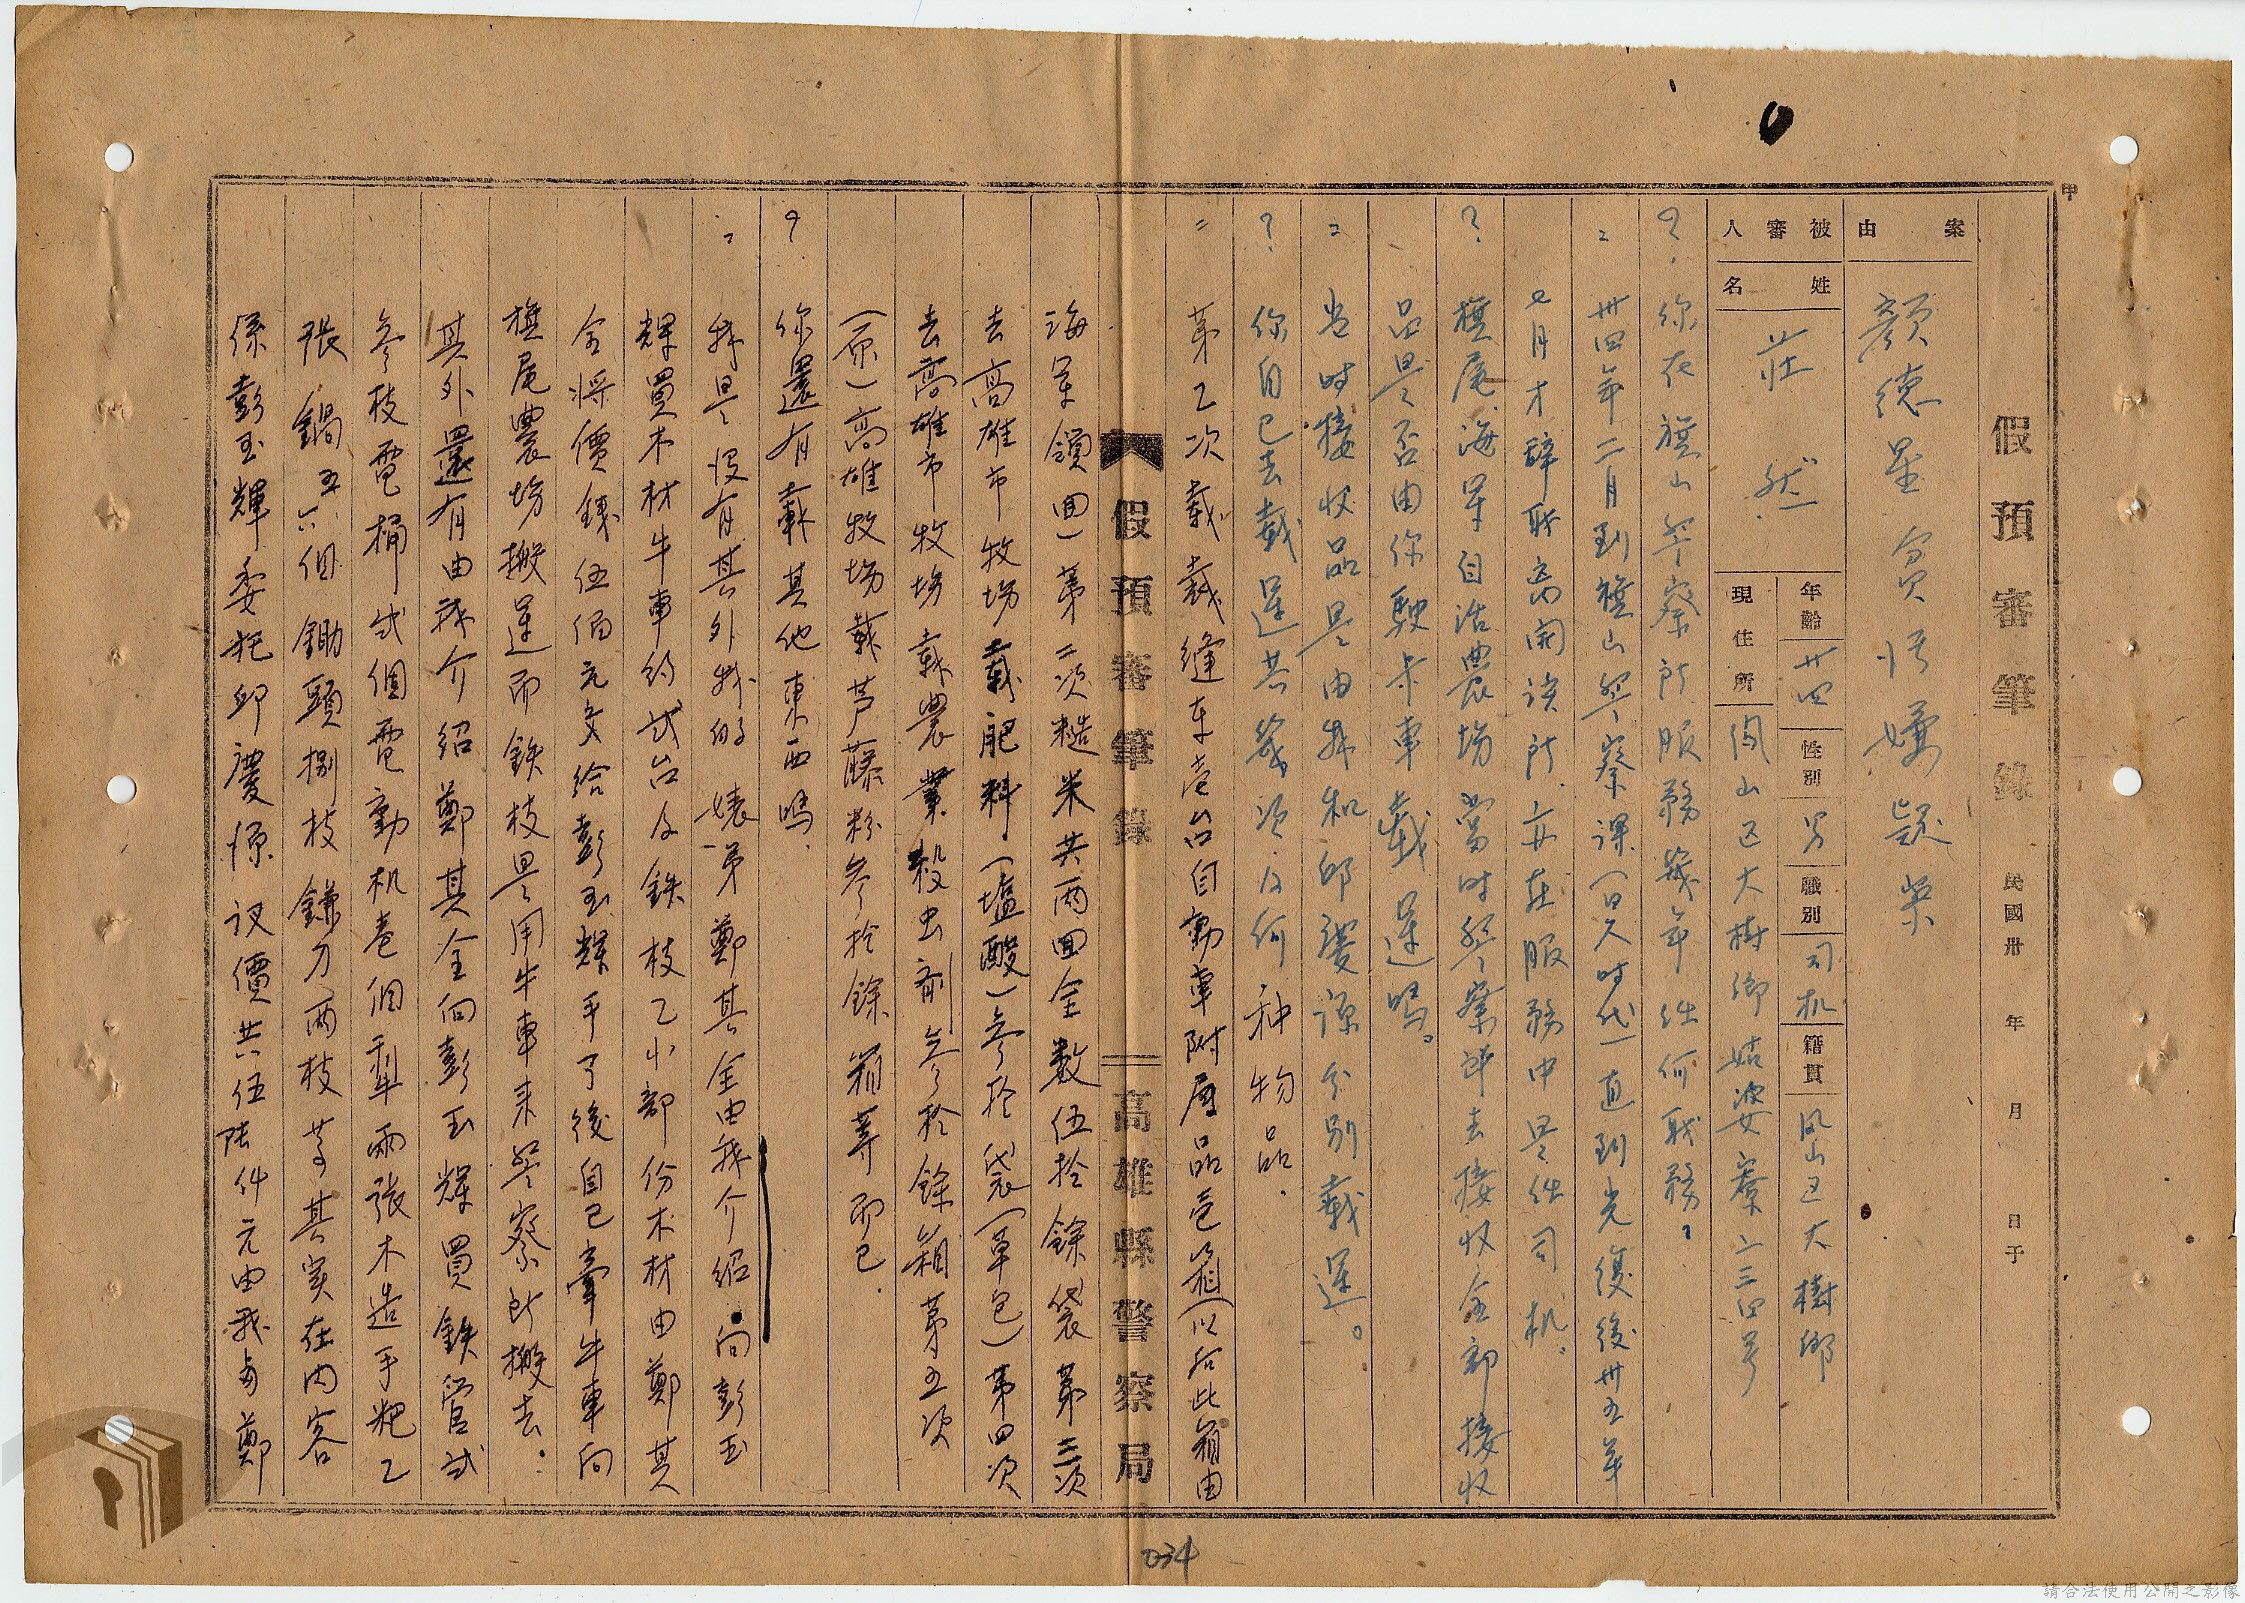 甲
假預審筆錄 民國卅 年 月 日于
案由 顏德星貪污嫌疑案
被審人 姓名 莊然 年齡 廿四 性別 男 職別 司机 籍貫 鳳山区大樹鄉
現住所 鳳山区大樹鄉姑婆寮二三四号
?. 你在旗山警察所服務幾年任何職務?
= 卅四年二月到旗山警察課(日人時代)直到光復後卅五年
七月才辭職离開該所.亦在服務中是任司机.
? 旗尾海軍自治農場當時警察所去接收全部接收
品是否由你駛卡車載運嗎。
= 当时接收品是由我和邱慶源分別載運。
? 你自己去載運共幾次及何种物品.
= 第乙次載裁縫車壱台自動車附屬品壱箱(以后此箱由
假預審筆錄 高雄縣警察局
海軍領回)第二次糙米共两回全数伍拾餘袋第三次
去高雄市牧場載肥料.(塩酸)参拾袋(草包)第四次
去高雄市牧場載農業殺虫劑参拾餘箱第五次
(原)高雄牧場載芦藤粉参拾餘箱等而已.
? 你還有載其他東西嗎.
= 我是没有其外我的婊弟鄭其全由我介紹.向彭玉
輝買木材牛車約弍台及鉄枝乙小部份木材由鄭其
全将價錢伍佰元交給彭玉輝手了後自己牽牛車向
旗尾農場搬運而鉄枝是用牛車来警察所搬去.
其外還有由我介紹鄭其全向彭玉輝買鉄管弍
参枝電桶弍個電動机壱個犁兩張木造手耙乙
張鍋五六個鋤頭捌枝鎌刀两枝等其实在内容
係彭玉輝委托邱慶源议價共伍陆仟元由我与鄭
034
請合法使用公開之影像